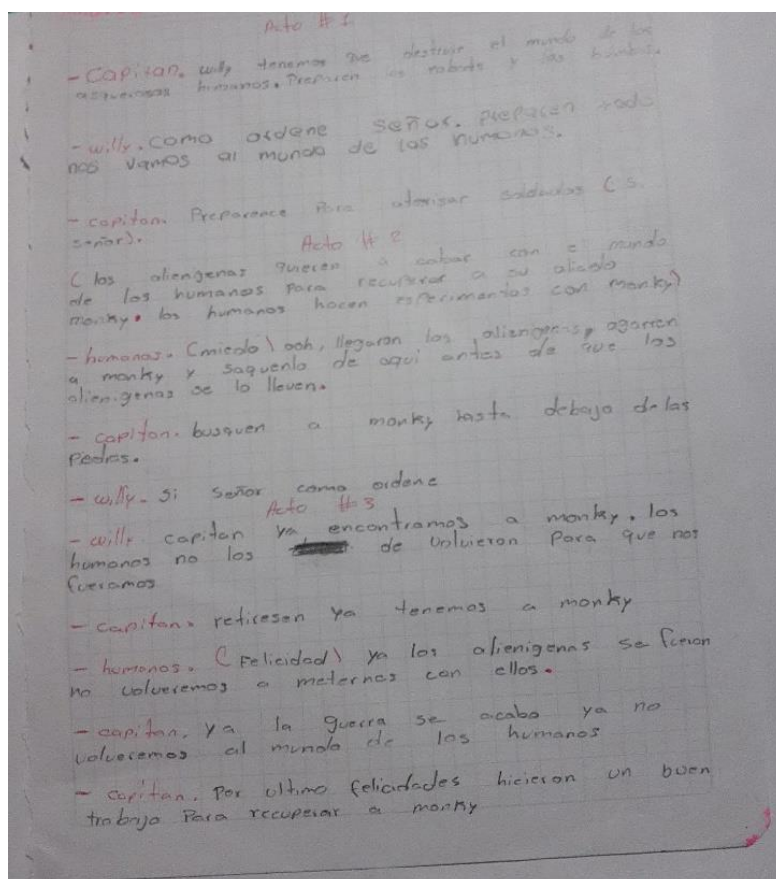 Acto # 1
- Capitan. willy tenemos que destruir el mundo de los
asquerosos humanos. Preparen los robots y las bombas.
- willy. como ordene señor. Preparen todo
nos vamos al mundo de los humanos.
- capitan. Preparence Para aterrisar soldados (si
señor).
Acto # 2
( los aliengenas quieren a cabar con el mundo
de los humanos para recuperar a su aliado
monky. los humanos hacen esperimentos con monky)
- humanos. (miedo) ooh, llegaron los alienigenas, agarren
a monky y saquenlo de aqui antes de que los
alienigenas se lo lleven.
- capitan. busquen a monky hasta debajo de las
Pedras.
- willy. si señor como ordene
Acto # 3
- willy capitan ya encontramos a monky. los
humanos no los de volvieron Para que nos
fueramos
- capitan. retiresen ya tenemos a monky
- humanos. (Felicidad) ya los alienigenas se fueron
no volveremos a meternos con ellos.
- capitan. ya la guerra se acabo ya no
volveremos al mundo de los humanos
- capitan. Por ultimo felicidades hicieron un buen
trabajo Para recuperar a monky